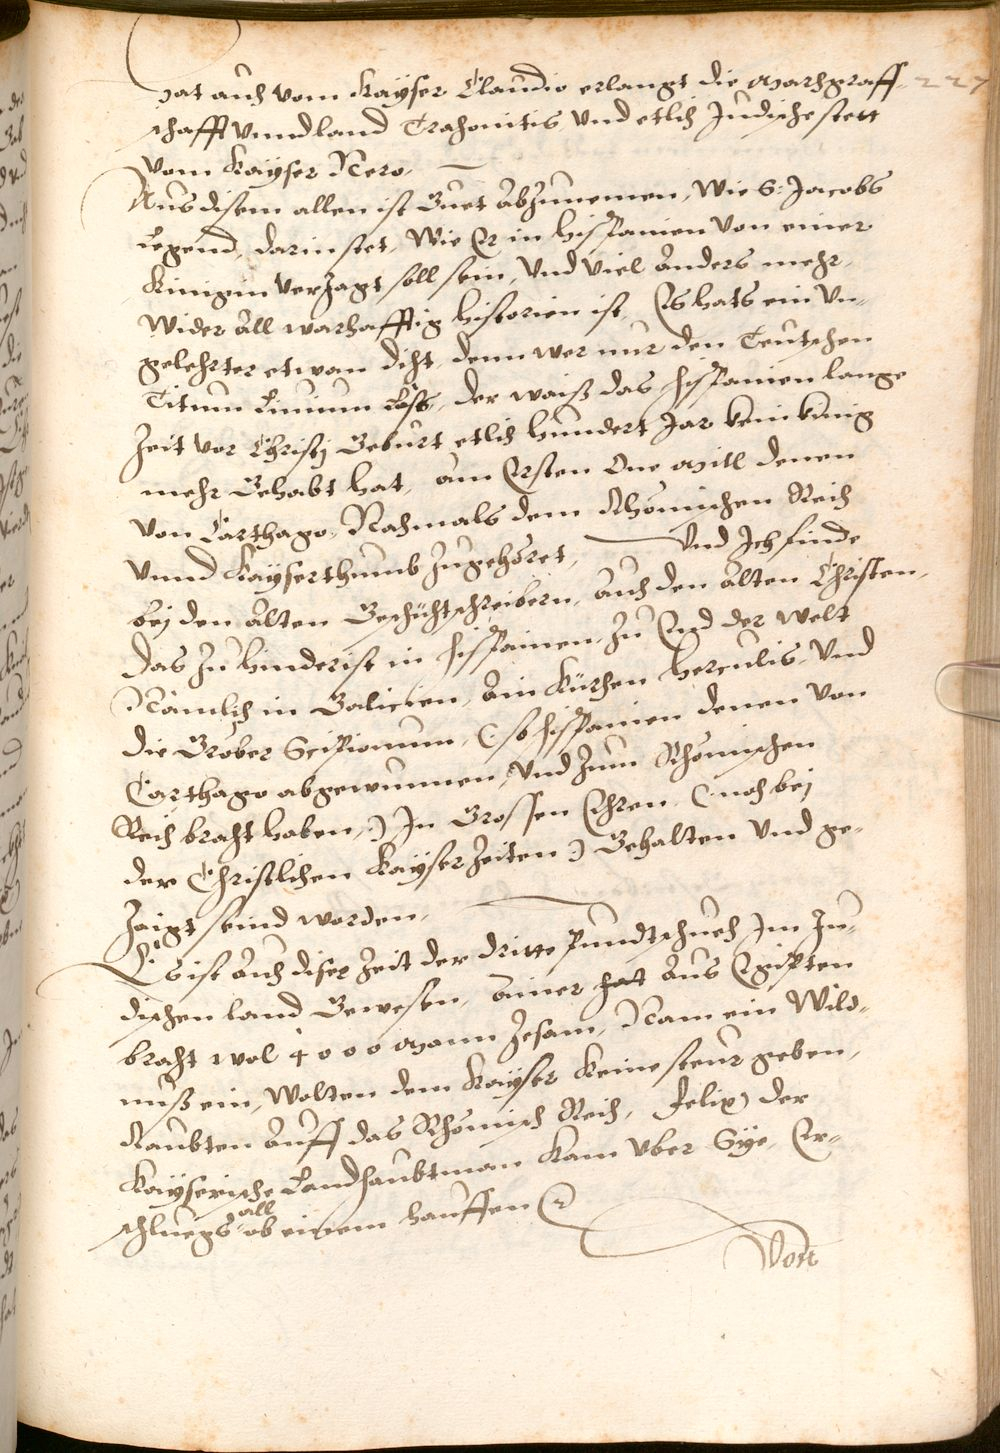 hat auch vom Kayser Claudio erlangt die Marchgraff- 227
schafft vnnd land Trahonitis vnd etlich Judische stett
vom Kayser Nero.
Aus disem allen ist Guet abzunemen, Wie S: Jacobs
Legend, darin stet, Wie Er in hispanien von einer
Künigin verJagt soll sein, vnd viel anders mehr,
Wider all warhafftig historien ist, Es hats ein vn-
gelehrter etwan dicht, denn wer nur den Teutschen
Titum Liuium Lest, der waiß das hispanien lange
Zeit vor Christj Geburt etlich hundert Jar kein künig
mehr Gehabt hat, am Ersten One Mitl denen
von Carthago, Nachmals dem Rhömischen Reich
vnnd Kayserthumb zugehöret, vnd Jch finde
bej den alten Geschichtschreibern, auch den alten Christen,
das zu hinderist in hispanien, zu End der welt
Nämlich in Galicien, ain Kürchen herculis, vnd
die Gröber Scipionum, (: so hispanien denen von
Carthago abgewunnen, vnd zum Rhömischen
Reich bracht haben :) Jn Grossen Ehren, (: noch bej
der Christlichen Kayser Zeiten :) Gehalten vnd ge-
Zaigt seind worden.
Es ist auch diser Zeit der dritte Pundtschuech Jm Ju-
dischen land Gewesen, ainer hat aus Egipten
bracht wol 4000 Mann Zesam, Nam ein Wild-
nuß ein, Wolten dem Kayser Keine steur geben,
Raubten auff das Rhömisch Reich, Felix der
Kayserische Landhaubtman Kam vber Sye, Er-
schluegs all ob einem hauffen
Von